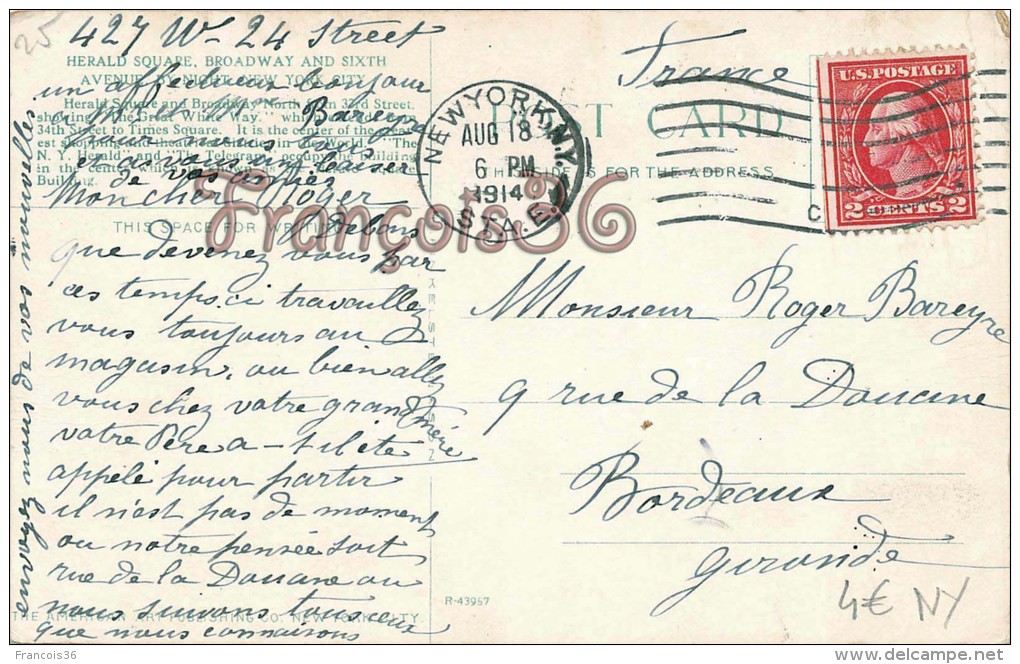 25
427 W- 24 Street
HERALD SQUARE, BROADWAY AND SIXTH
AVENUE, BY NIGHT, NEW YORK CITY
un affectueux bonjour
Herald Square and Broadway North from 33rd Street,
a Bareyre
showing "The Great White Way," which
34th Street to Times Square. It is the center of the great-
est shopping and theatre District in the World. "The
N. Y. Herald" and "The Telegram" occupy the building
in the center
Building.
de vos amies
Mon cher Roger
THIS SPACE FOR WRITING
que devenez vous par
ces temps.ci travaillez
vous toujours au
magasin, ou bien allez
vous chez votre grand mère
votre Père a-t-il ete
appelé pour partir
il n'est pas de moment
ou notre pensée soit
rue de la Douane ou
nous suivons tous ceux
que nous connaisons
envoyez nous de vos nouvelles
THE AMERICAN ART PUBLISHING CO. NEW YORK CITY
R-43957
France
POST CARD
THIS SIDE IS FOR THE ADDRESS
NEW YORK, N.Y.
AUG 18
6 PM
1914
STA.
U.S. POSTAGE
2 CENTS 2
Monsieur Roger Bareyre
9 rue de la Douane
Bordeaux
Gironde
4€ NY
François36
François36
delcampe.net